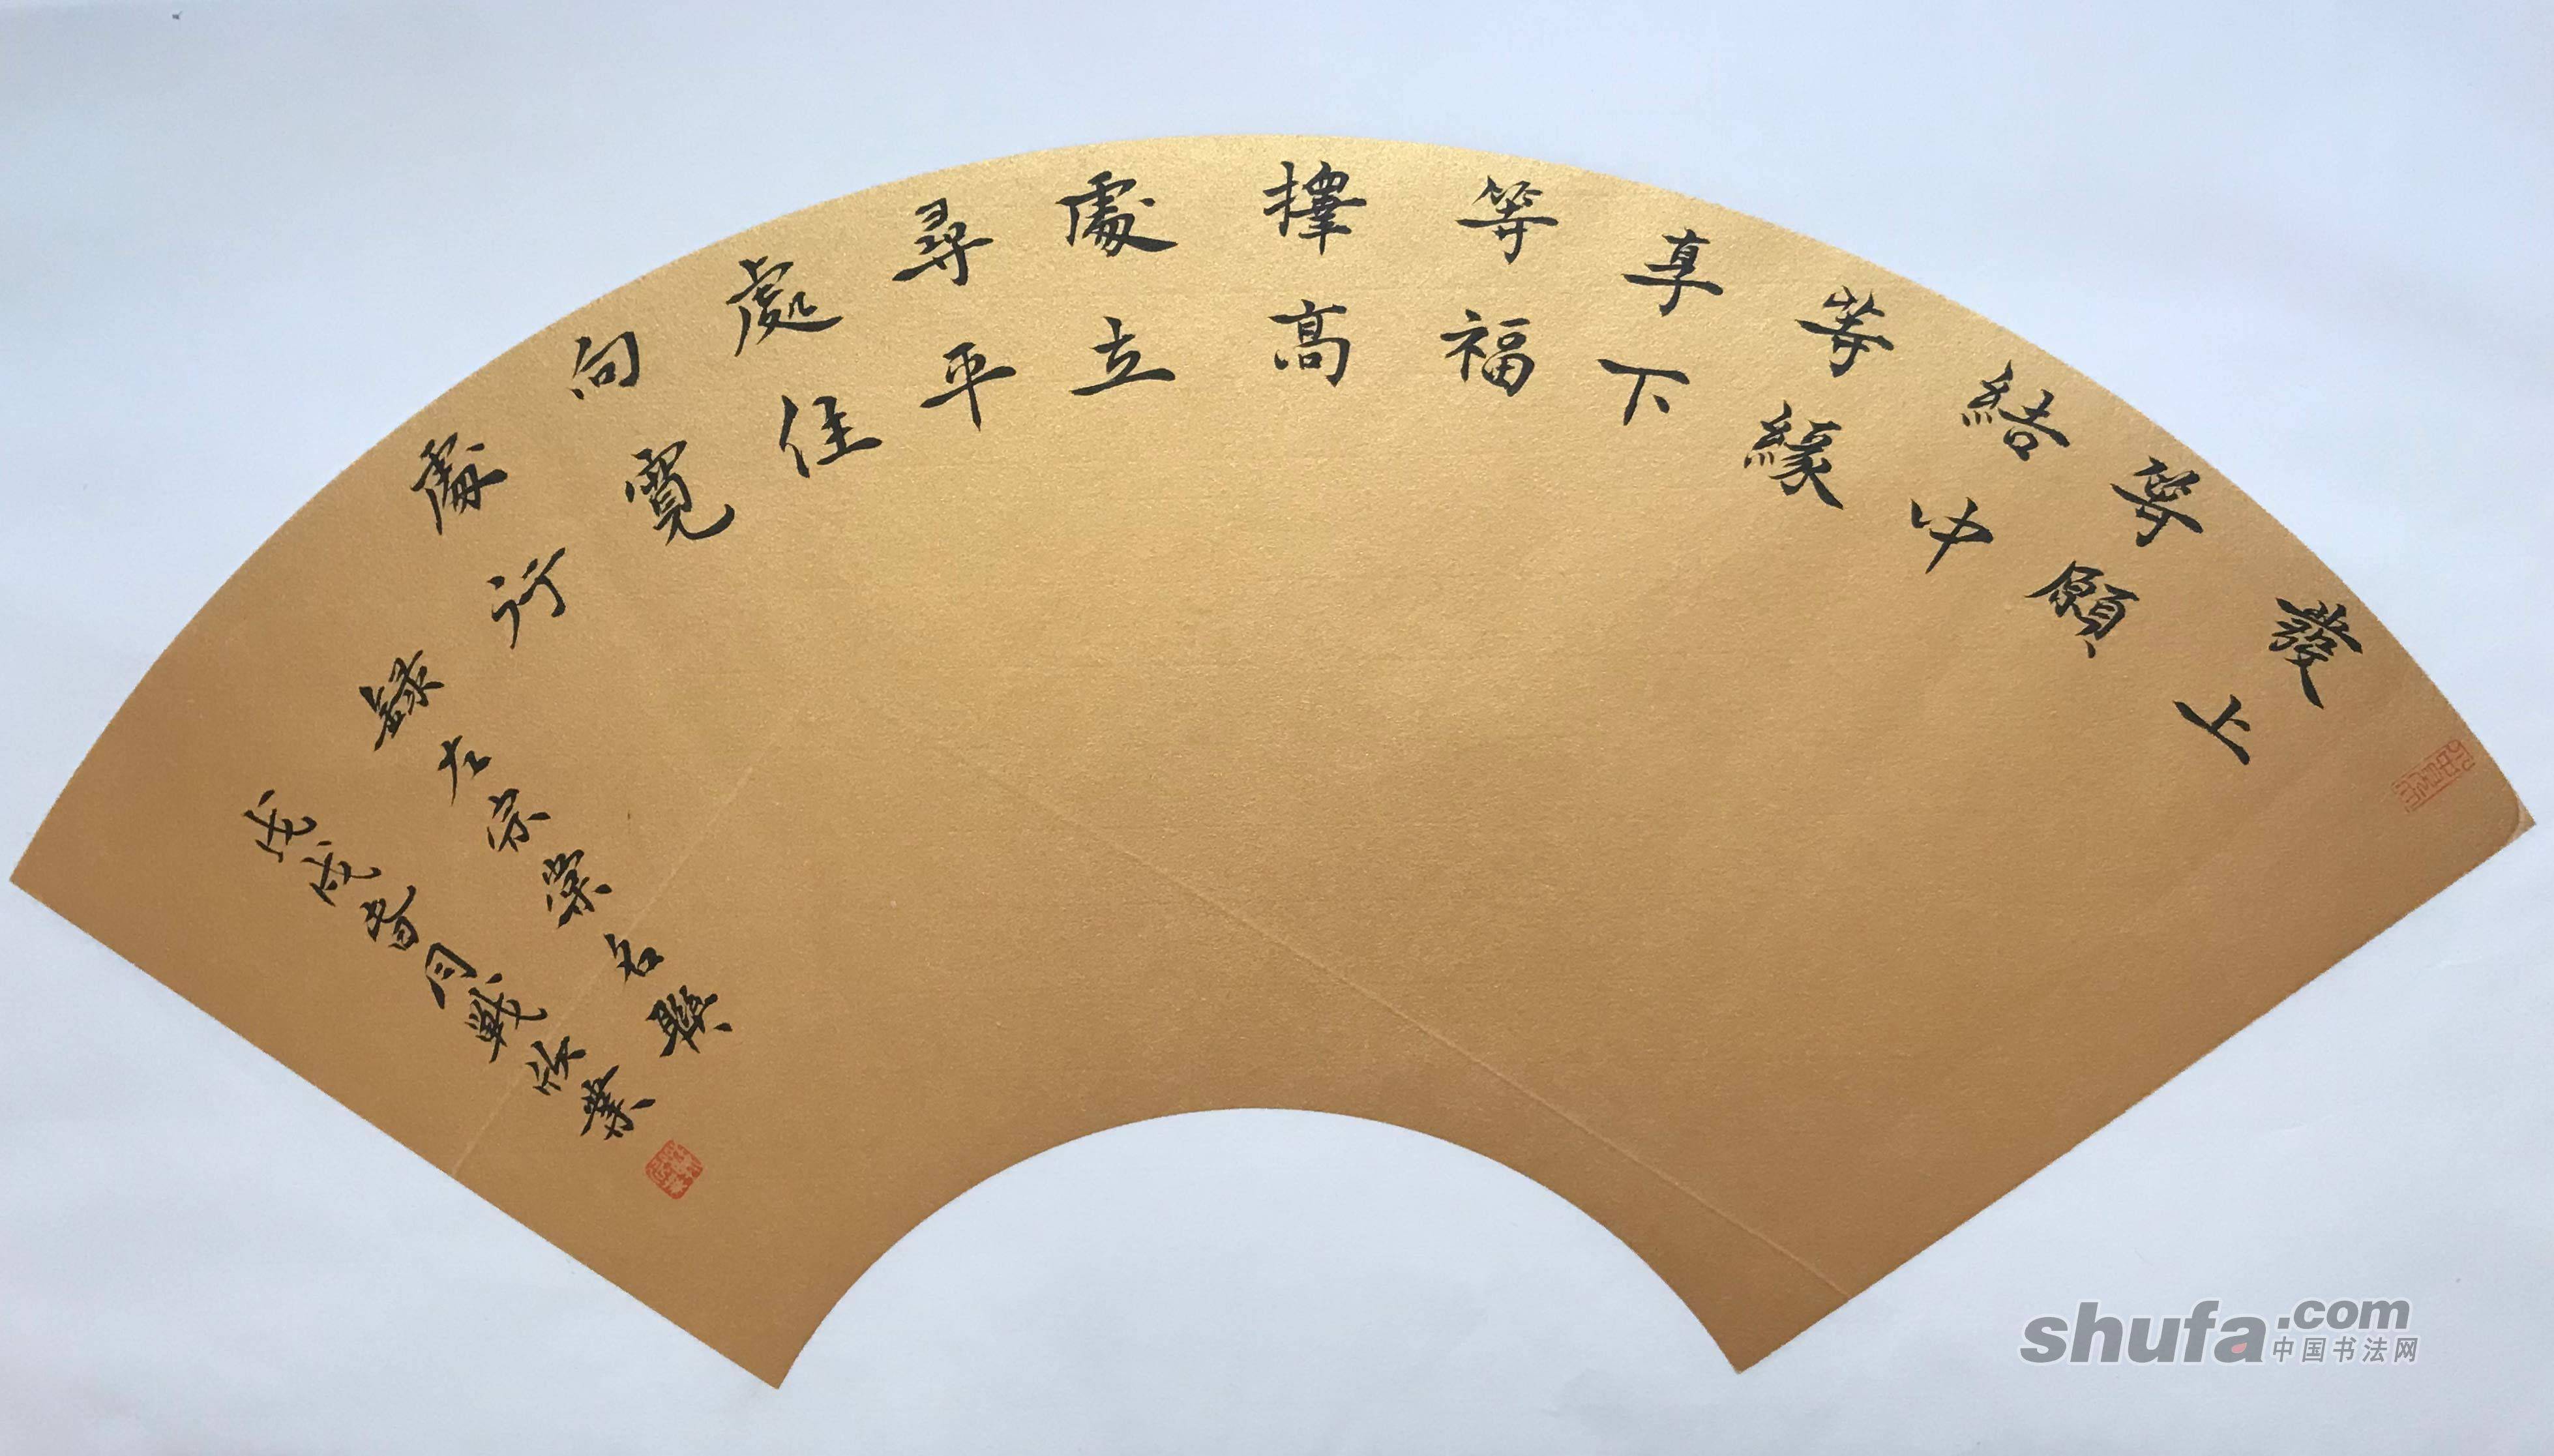 發上
等願
結中
等緣
享下
等福
擇高
處立
尋平
處住
向寬
處行
錄左宗棠名聯
戊戌春月戰
shufa.com
中国书法网